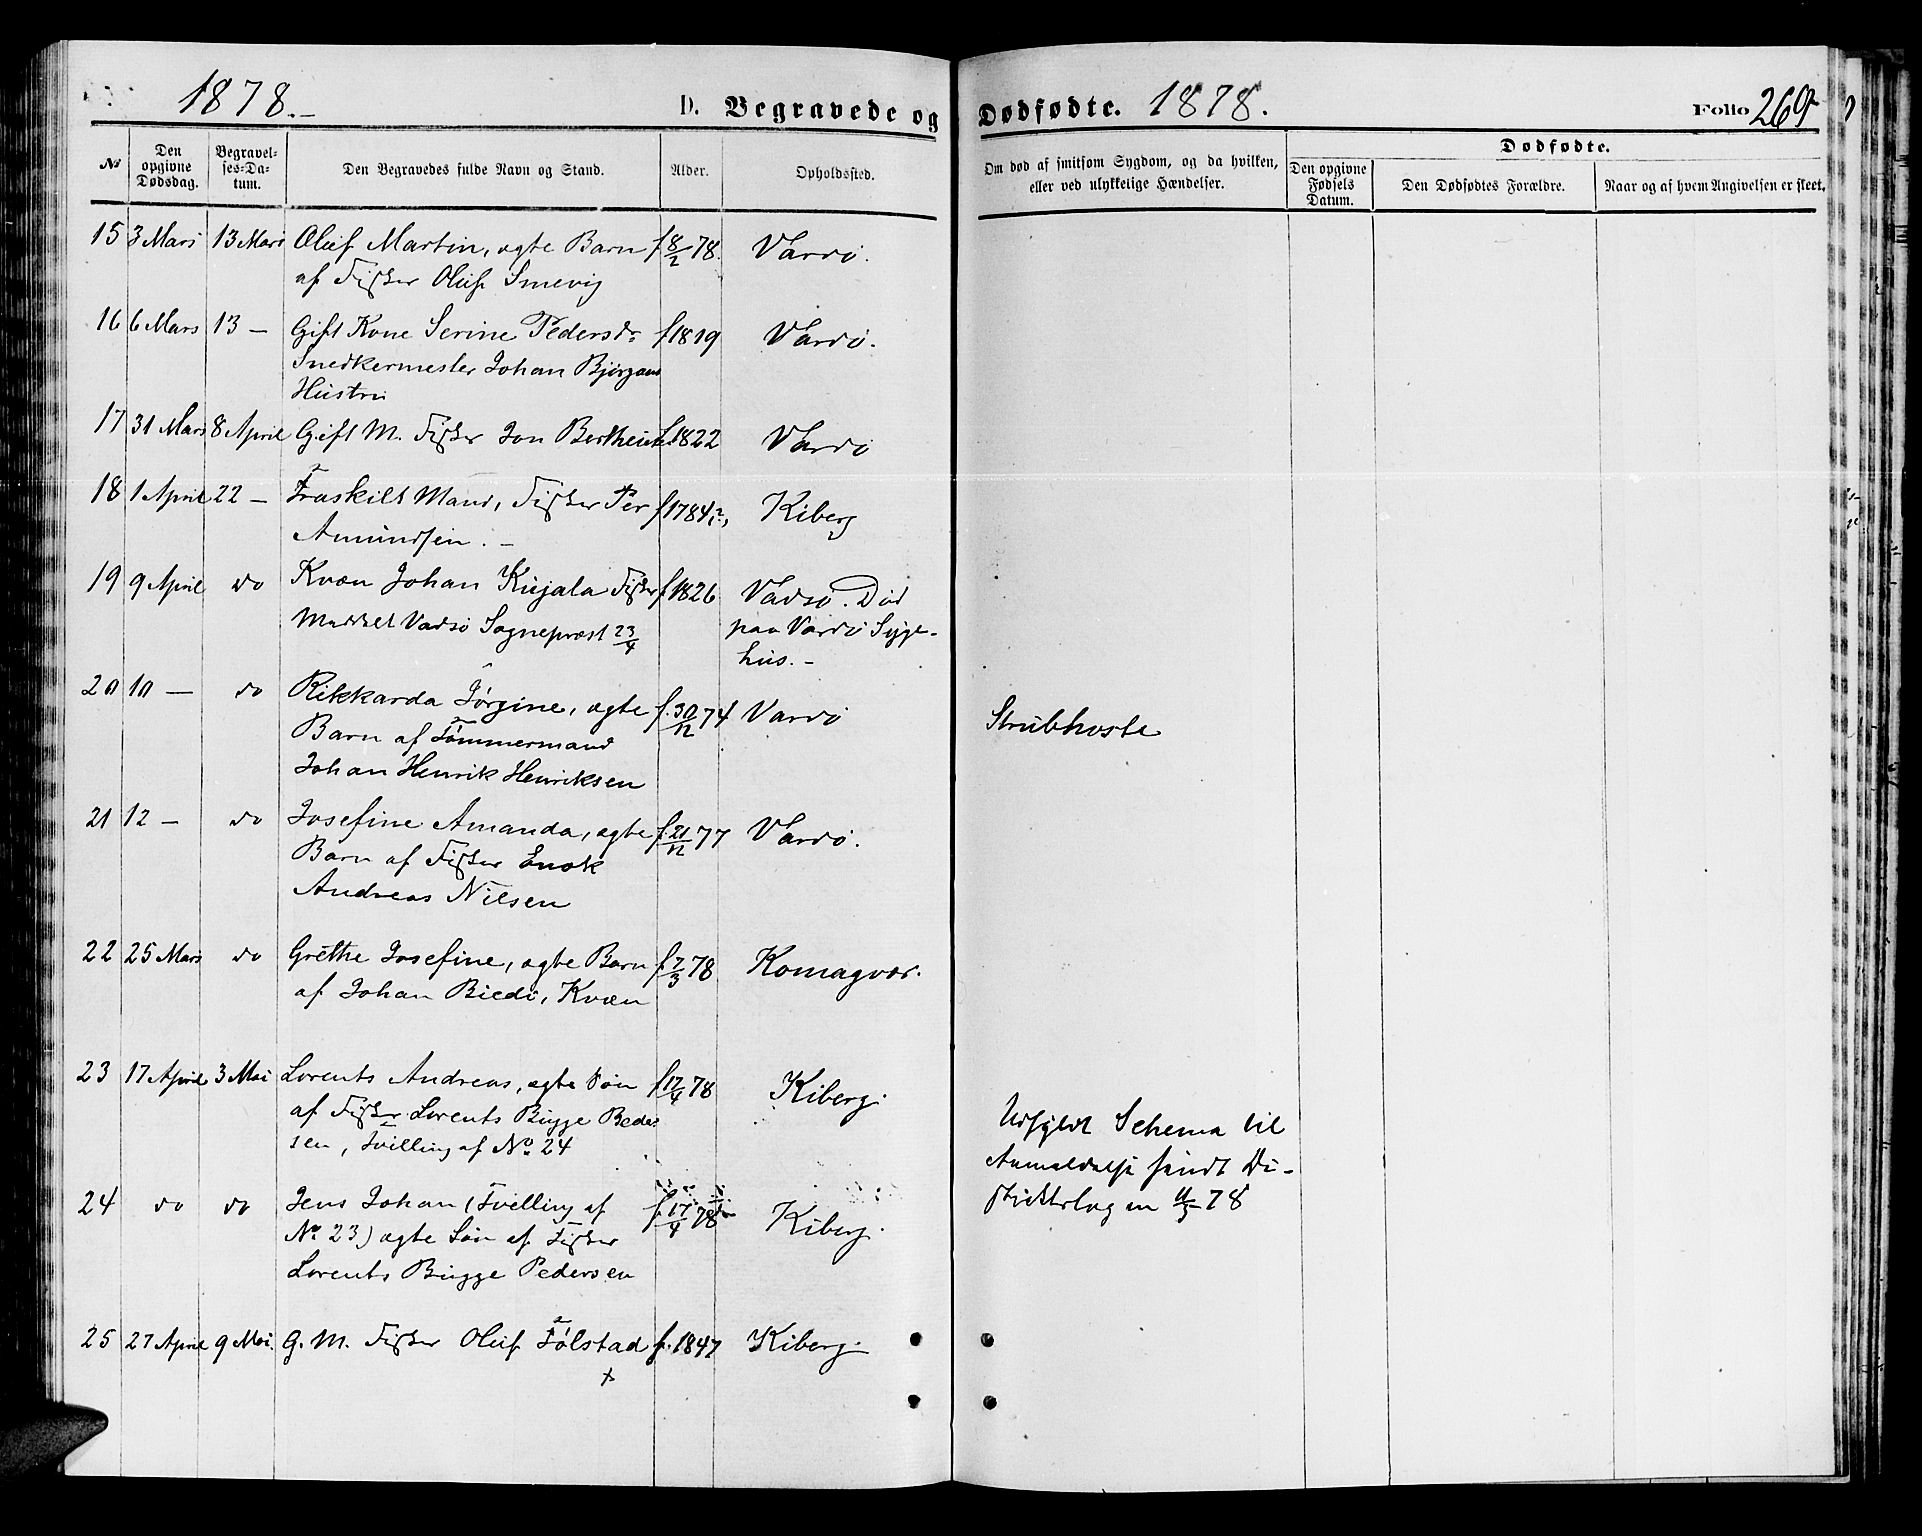 1878.-
D. Begravede og
№
Den opgivne Dødsdag.
Begravelses-Datum.
Den Begravedes fulde Navn og Stand.
Alder.
Opholdssted.
15 3 Mars 13 Mars Oluf Martin, ægte Barn f 8/2 78. Vardö.
af Fisker Oluf Smevig
16 6 Mars 13 — Gift Kone Serine Pedersdr f 1819 Vardö.
Snedkermester Johan Björgans
Hustru
17 31 Mars 8 April Gift M. Fisker Jon f 1822 Vardö
18 1 April 22 — Fraskilt Mand, Fisker Per f 1784(?), Kiberg
Amundsen. -
19 9 April do Kvæn Johan Kujala Fisker f 1826 Vadsö. Död
Meddelt Vadsö Sognepræst 23/4 paa Vardö Syge-
hus. -
20 10 — do Rikkarda Jørgine, ægte f. 30/12 74 Vardö
Barn af Tømmermand
Johan Henrik Henriksen
21 12 — do Josefine Amanda, ægte f. 21/12 77 Vardö.
Barn af Fisker Enok
Andreas Nilsen
22 25 Mars do Grethe Josefine, ægte Barn f. 7/3 78 Komagvær.
af Johan Biedi, Kvæn
23 17 April 3 Mai Lorents Andreas, ægte Sön f 17/4 78 Kiberg.
af Fisker Lorents Bugge Peder-
sen, Tvilling af No 24
24 do do Jens Johan (Tvilling af f. 17/4 78 Kiberg.
No 23) ægte Sön af Fisker
Lorents Bugge Pedersen
25 27 April 9 Mai. G. M. Fisker Oluf Følstad f. 1847 Kiberg.
+
Dødfødte. 1878.
Folio 269
Om død af smitsom Sygdom, og da hvilken,
eller ved ulykkelige Hændelser.
Dødfødte.
Den opgivne Fødsels Datum.
Den Dødfødtes Forældre.
Naar og af hvem Angivelsen er skeet.
Strubhoste
Udfyldt Schema til
Anmeldelse sendt Di-
striktslægen 4/5 78